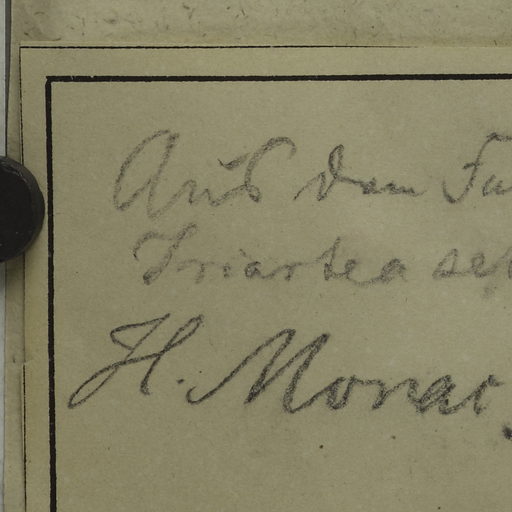 Aus dem Fu
Iriartea se
H. Monac